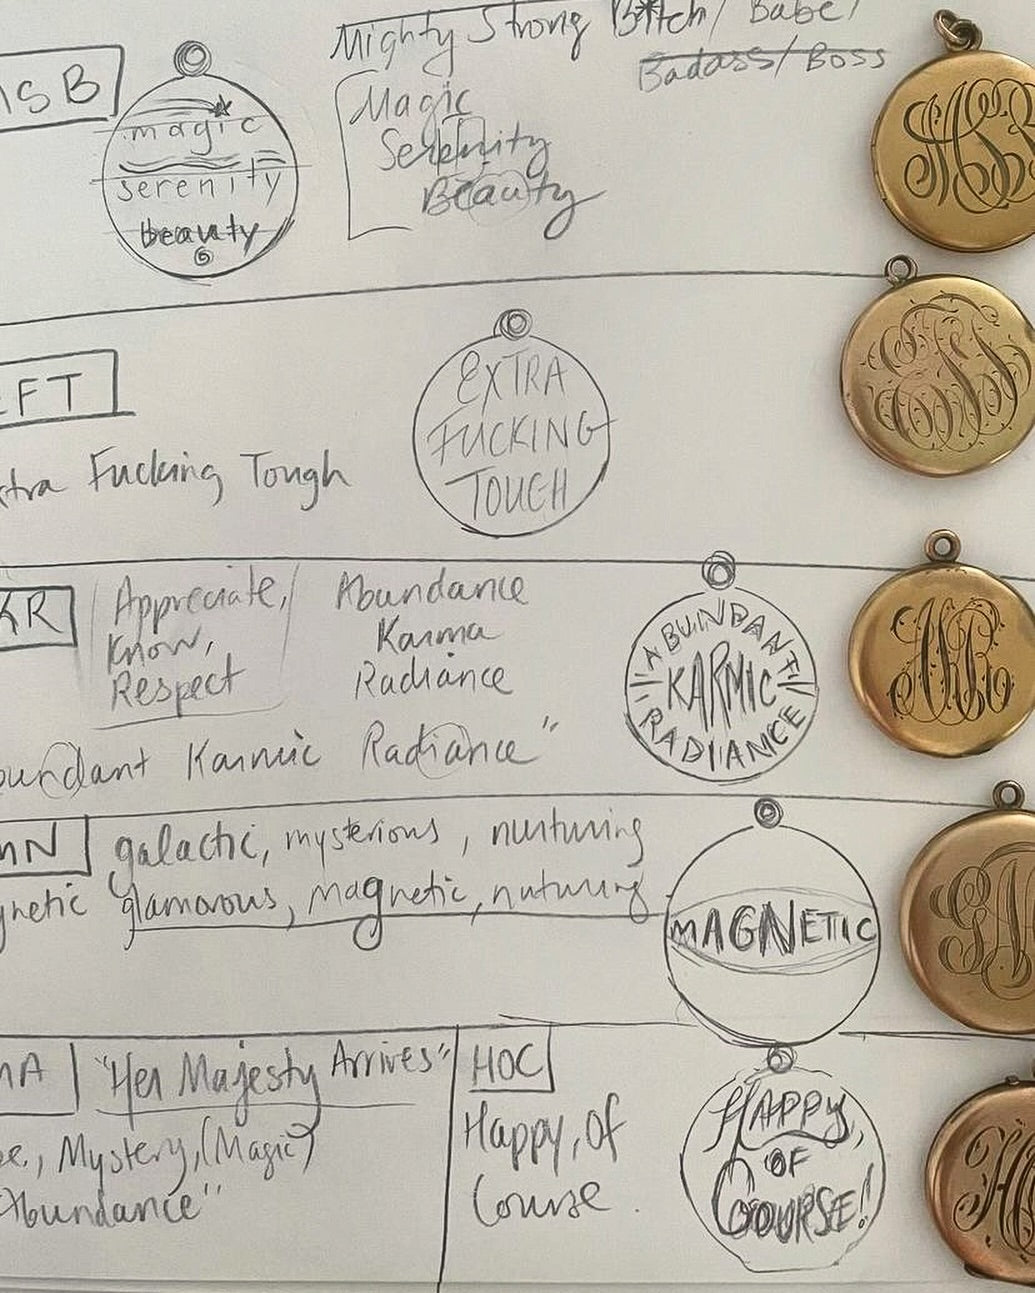 MSB
Mighty Strong B*tch/ Babe/
Badass/Boss
magic
serenity
beauty
Magic
Serenity
Beauty
EFT
xtra Fucking Tough
EXTRA
FUCKING
TOUGH
KR
Appreciate,
Know,
Respect
Abundance
Karma
Radiance
bundant Karmic Radiance"
ABUNDANT
KARMIC
RADIANCE
MN
galactic, mysterious, nurturing
gnetic glamorous, magnetic, nuturing
MAGNETIC
MA
"Her Majesty Arrives"
pe, Mystery, (Magic)
Abundance"
HOC
Happy, Of
Course.
HAPPY,
OF
COURSE!